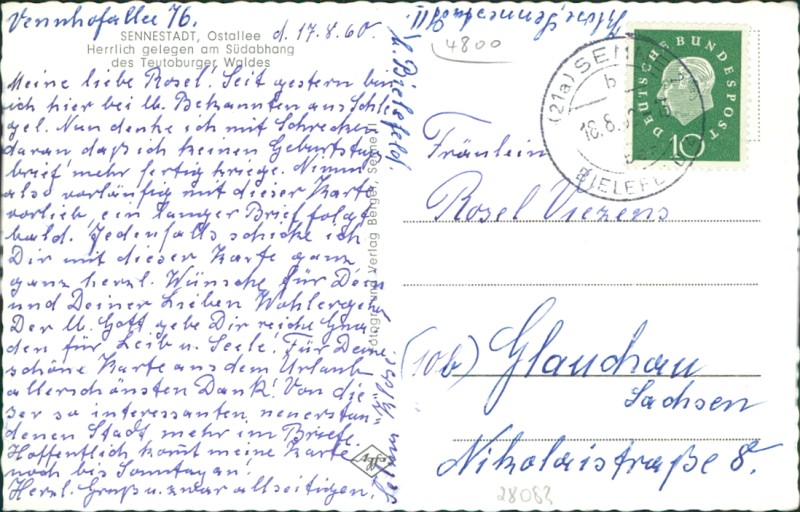 Vennhofallee 76.
SENNESTADT, Ostallee
Herrlich gelegen am Südabhang
des Teutoburger Waldes
d. 17. 8. 60.
Meine liebe Rosel! Seit gestern bin
ich hier bei lb. Bekannten aus Schle
gel. Nun denke ich mit Schrecken
daran daß ich keinen Geburtstag
brief mehr fertig kriege. Nimm
also vorläufig mit dieser Karte
vorlieb, ein langer Brief folgt
bald. Jedenfalls schicke ich
Dir mit dieser Karte ganz,
ganz herzl. Wünsche für Dein
und Deiner Lieben Wohlergeh
Der lb. Gott gebe Dir reiche Gna
den für Leib u. Seele! Für Deine
schöne Karte aus dem Urlaub
allerschönsten Dank! Von die
ser so interessanten, neuerstan
denen Stadt mehr im Briefe.
Hoffentlich komt meine Karte
noch bis Sonntag an!
Herzl. Gruß u. zwar allseitigen,
b. Bielefeld.
Verlag Berger, Senne I
4800
DEUTSCHE BUNDESPOST
10
(21a) SENNE
b
BIELEFELD
Fräulein
Rosel Viezens
(10b) Glauchau
Sachsen
Nikolaistraße 8.
28082